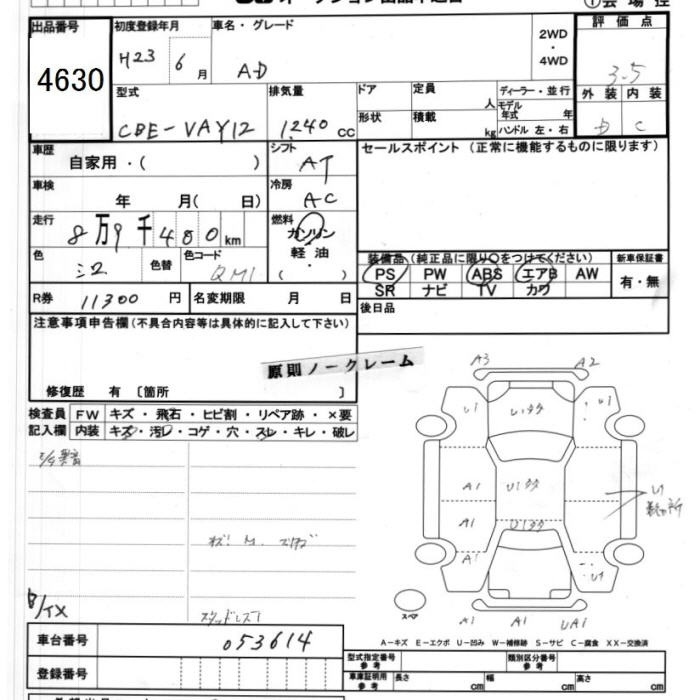 出品番号
4630
初度登録年月
H23年 6月
車名・グレード
AD
2WD
・
4WD
評価点
3.5
外装 内装
D C
型式
CBE-VAY12
排気量
1,240 cc
ドア
定員
人
形状
積載
kg
ディーラー・並行
モデル年式 年
ハンドル 左・右
車歴
自家用・( )
シフト
AT
車検
年 月( 日)
冷房
AC
走行
8万9千400km
燃料
ガソリン
軽油
( )
色
シロ
色替
色コード
QM1
R券 11300円
名変期限 月 日
セールスポイント(正常に機能するものに限ります)
装備品(純正品に限り○をつけてください)
PS PW ABS エアB AW
SR ナビ TV カワ
新車保証書
有・無
後日品
注意事項申告欄(不具合内容等は具体的に記入して下さい)
原則ノークレーム
修復歴 有〔箇所 〕
検査員記入欄
FW キズ・飛石・ヒビ割・リペア跡・×要
内装 キズ・汚レ・コゲ・穴・スレ・キレ・破レ
A3 A2
U1
A1
A1
A1
U1
U1
A1 A1 UA1
スペア
スタッドレス
A-キズ E-エクボ U-凹み W-補修跡 S-サビ C-腐食 XX-交換済
車台番号
053614
登録番号
型式指定番号 参考
類別区分番号 参考
車庫証明用 参考
長さ cm 幅 cm 高さ cm